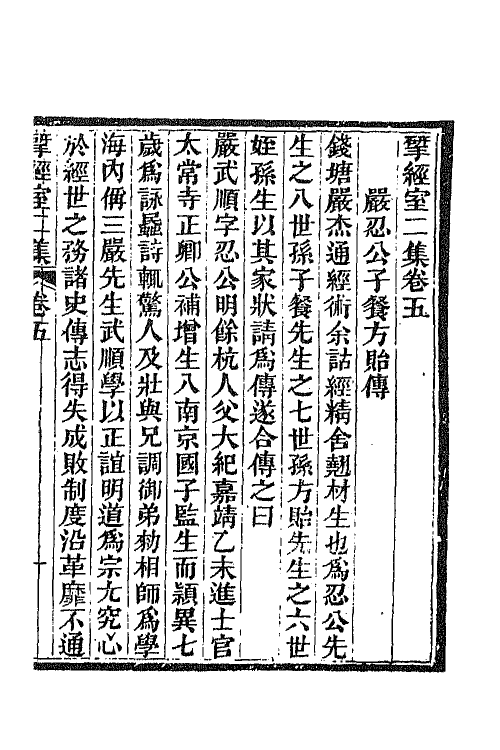 揅經室二集卷五
嚴忍公子餐方貽傳
錢塘嚴杰通經術余詁經精舍翹材生也爲忍公先
生之八世孫子餐先生之七世孫方貽先生之六世
姪孫生以其家狀請爲傳遂合傳之曰
嚴武順字忍公明餘杭人父大紀嘉靖乙未進士官
太常寺正卿公補增生入南京國子監生而穎異七
歲爲詠蠶詩輒驚人及壯與兄調御弟勑相師爲學
海內偁三嚴先生武順學以正誼明道爲宗尢究心
於經世之務諸史傳志得失成敗制度沿革靡不通
揅經室二集 卷五 一